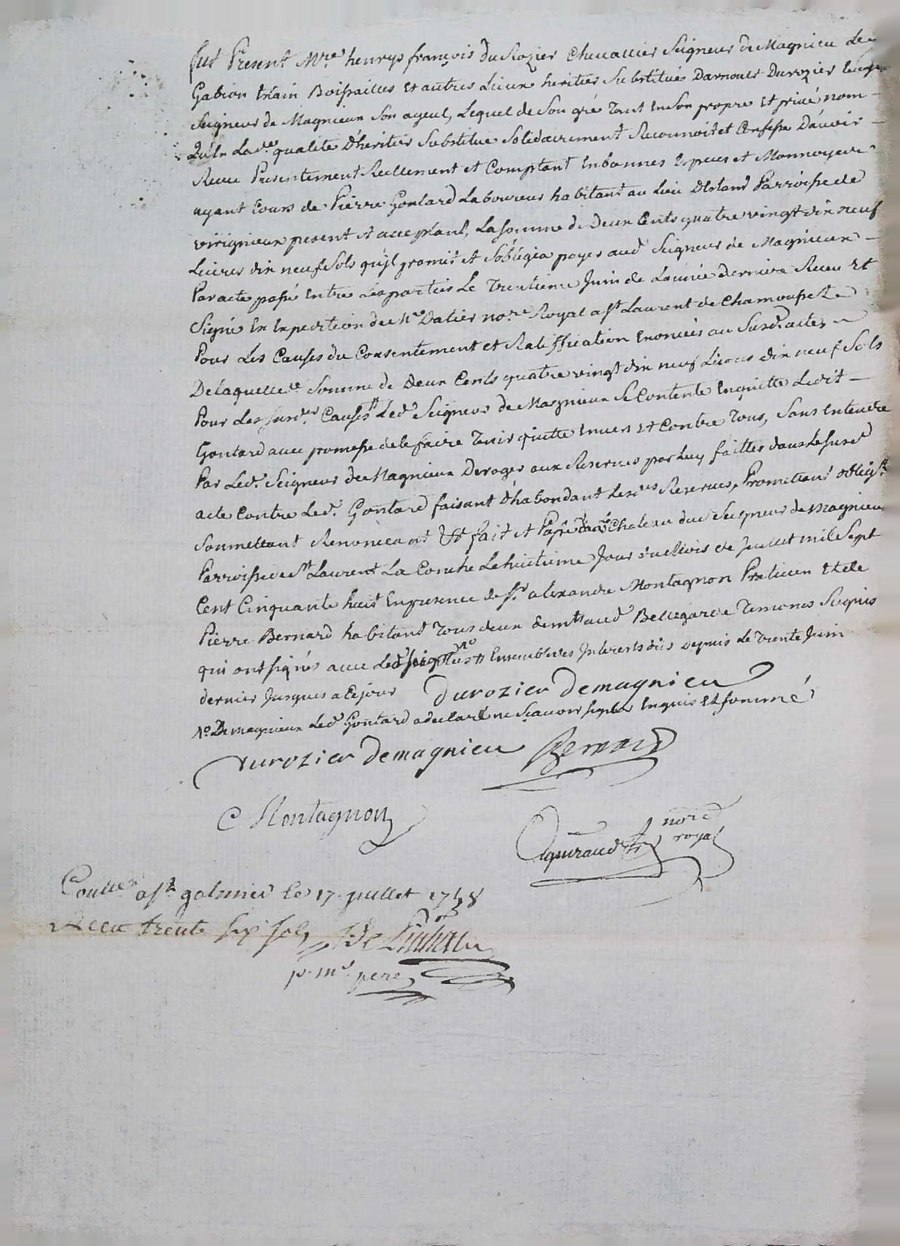 fut Présent Mre henrys françois Du Rozier Chevallier Seigneur de Magnieu Le
Gabion Boissailles et autres Lieux heritier Substitué Darnoult Durozier
Seigneur de Magnieux Son ayeul, Lequel de Son gre tant En Son propre et privé nom
La de qualité D'heritier Substitue Solidairement Reconnoit et Confesse D'avoir
Receu Presentement Reellement et Comptant En bonnes Especes et Monnoyes
ayant Cours de Pierre Gontard Laboureur habitant au Lieu Parroisse de
virigneux present et acceptant, La somme de Deux Cents quatre vingt dix neuf
Livres dix neuf Sols qu'jl promit et Sobligea payer aud Seigneur de Magnieux
Par acte passé Entre Les parties Le Trentieme Juin de Lannée derniere Receu Et
Signé En Expedition de Me Datier nore Royal a St Laurent de Chamousset
Pour Les Causes du Consentement et Ratiffication Enoncées au Susd acte,
De laquelle Somme de Deux Cents quatre vingt dix neuf Livres dix neuf Sols
Pour Les Causes Led Seigneur de Magnieux Se Contente En quitte Ledit
Gontard avec promesse de le faire Tenir quitte Envers Et Contre Tous, Sans Entendre
Par Led. Seigneur de Magnieux Deroger aux Reserves par Luy faittes dans Le Susd
acte Contre Led. Gontard faisant d'habondant Les Reserves, Promettant oblig.t
Soumettant Renonceant &t fait et Passé au Chateau dud Seigneur de Magnieu
Parroisse de St Laurent La Conche Le huitieme Jour du Mois de Juillet mil Sept
Cent Cinquante huit En presence de Sr alexandre Montagnon Praticien Et de
Pierre Bernard habitand Tous deux de Bellegarde Temoins
qui ont signés avec Led Ensemble Les Interests dus depuis Le Trente Juin
dernier Jusques a Ce jour Durozier Demagnieu
Demagnieux Led Gontard a declaré ne Scavoir signer Enquis Et sommé
Durozier Demagnieu Bernard
C Montagnon
nore
royal
a St galmier le 17 juillet 1758
Receu trente six sols
pr mr pere